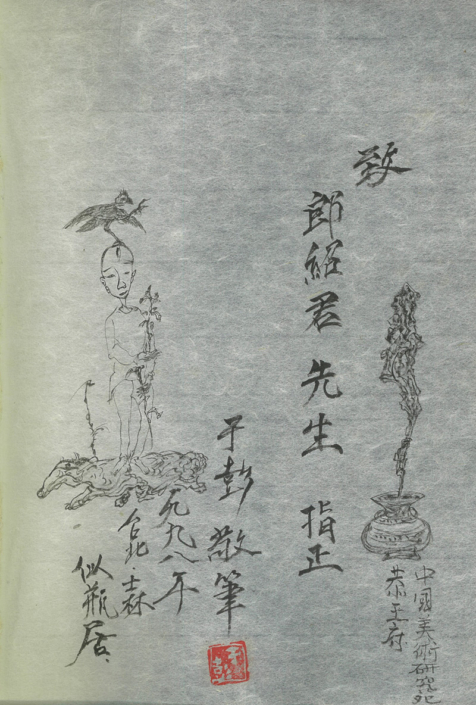 中國美術研究院
恭王府
致
郎紹君先生 指正
于彭敬筆
一九九八年
台北·士林
似瓶居
于彭